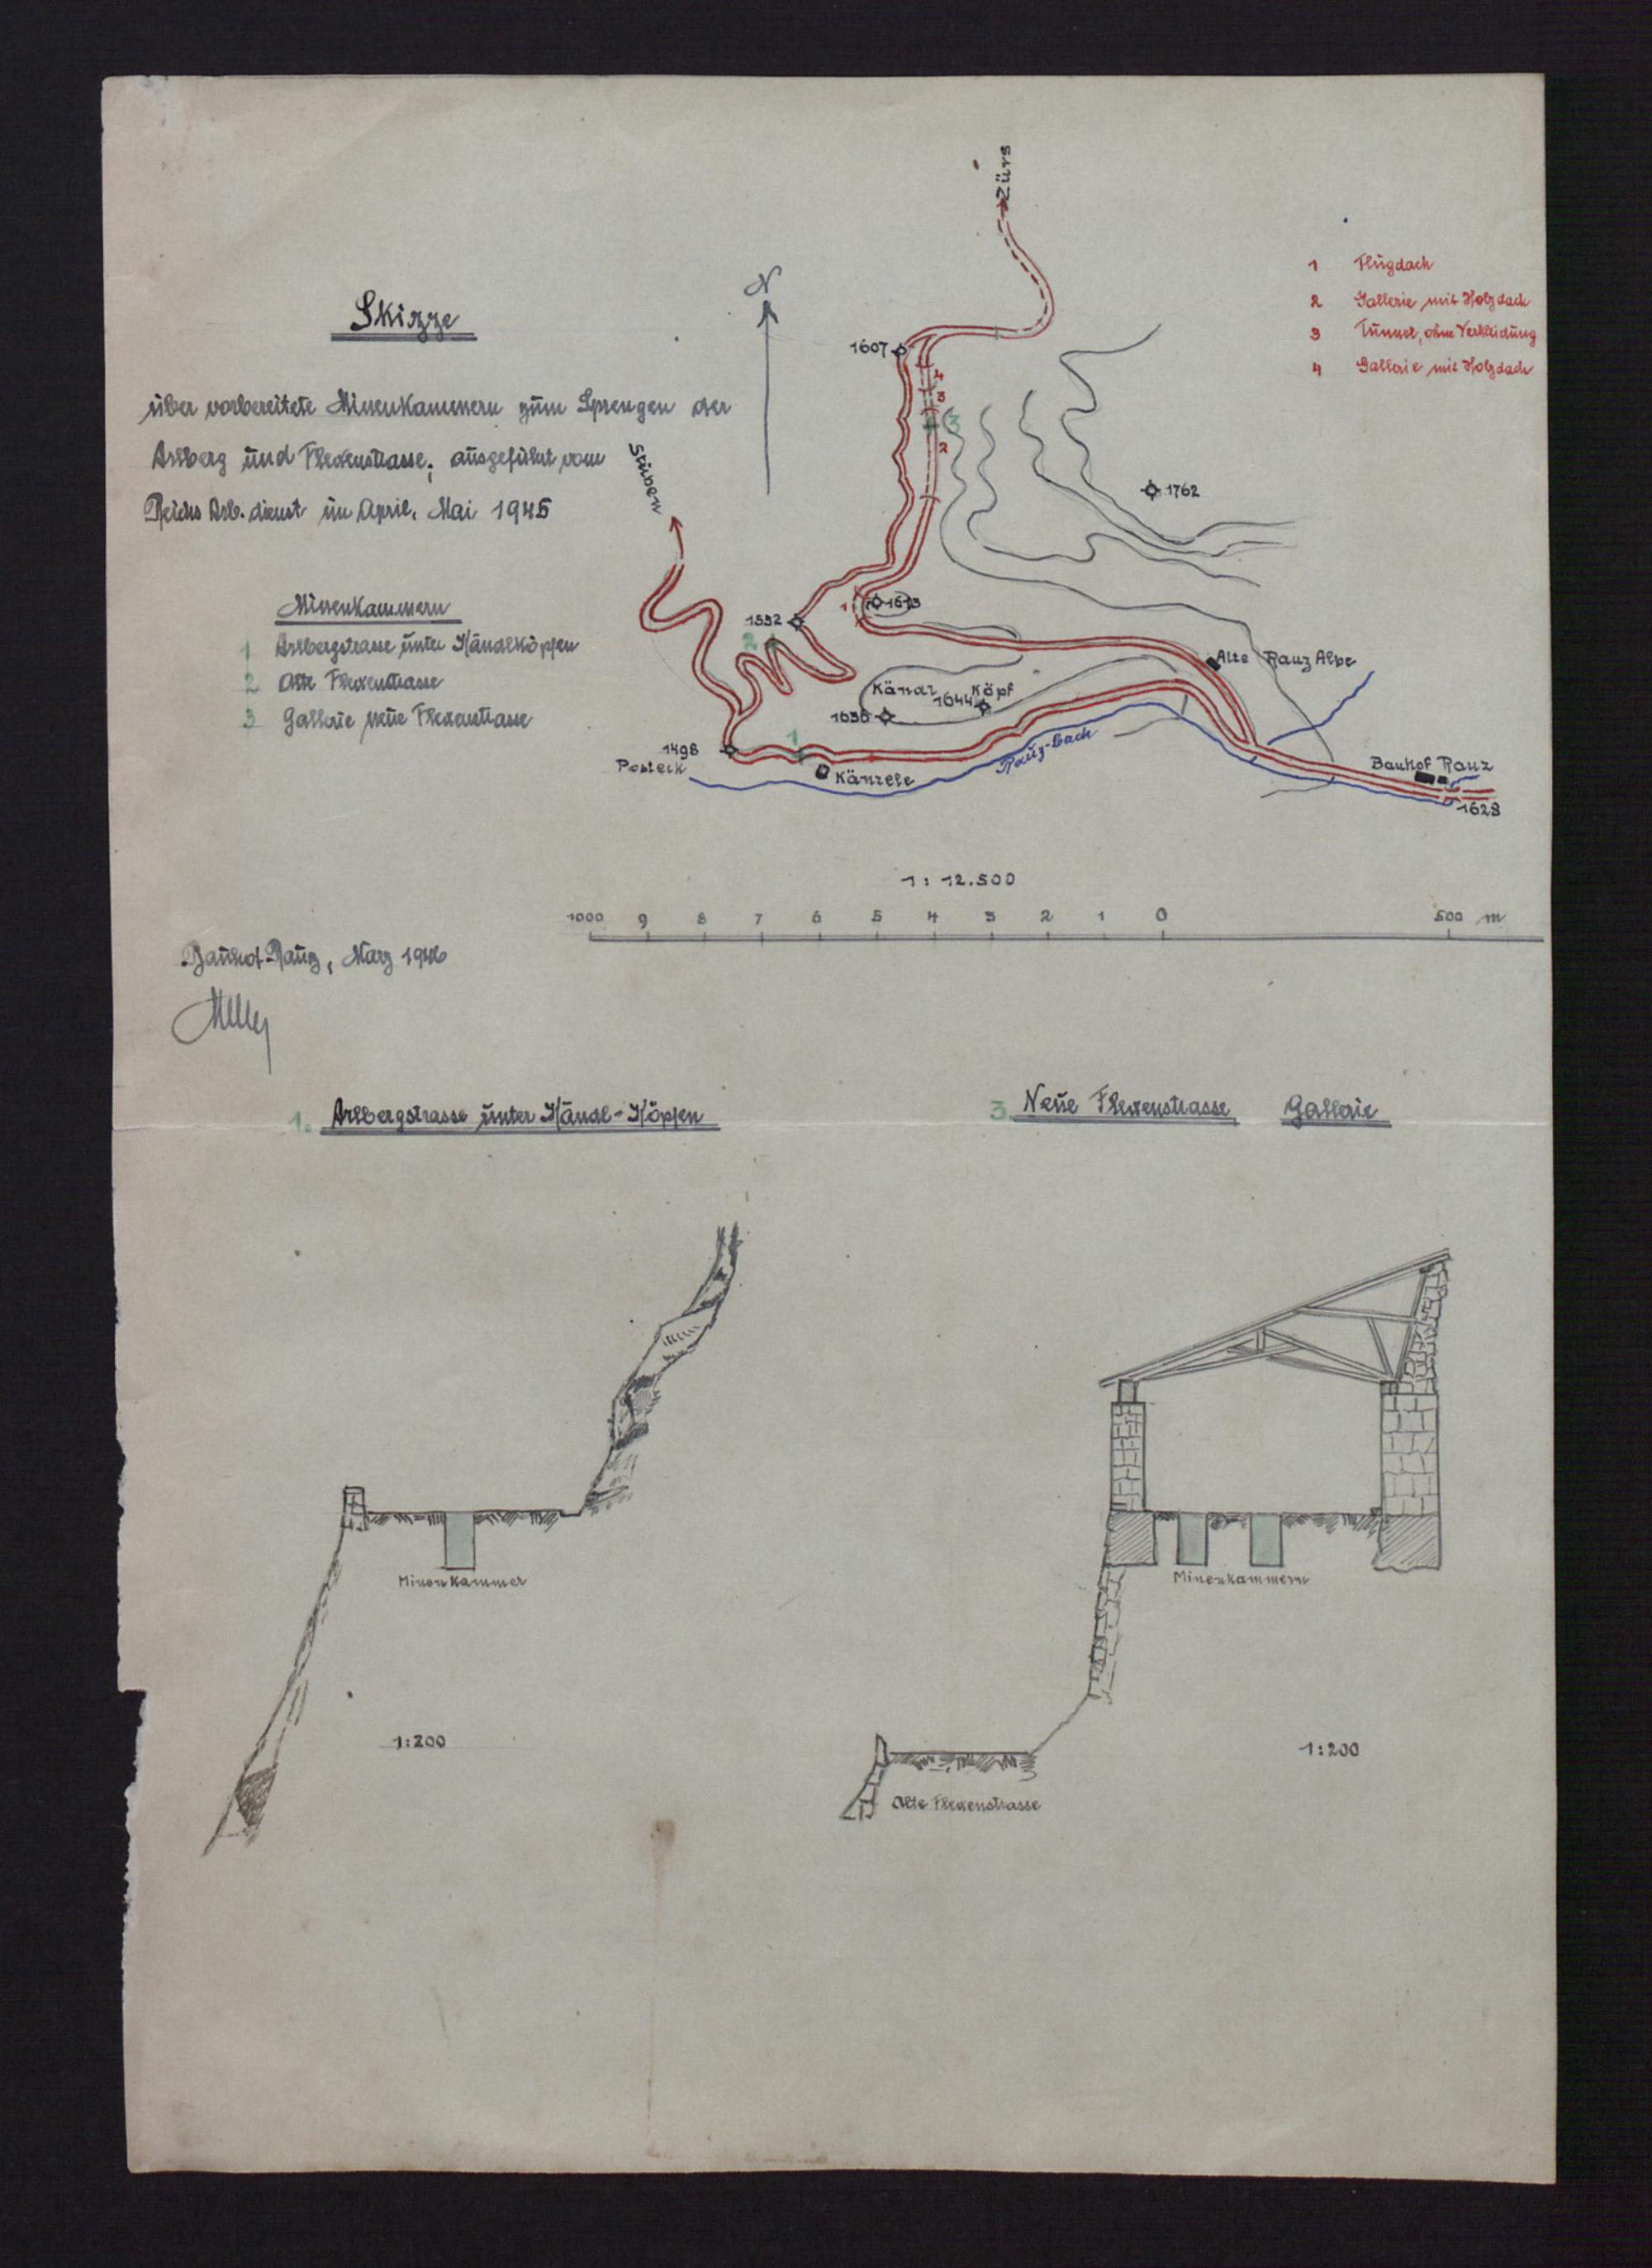 Skizze
über vorbereitete Minenkammern zum Sprengen der
Arlberg und Flexenstrasse; ausgeführt vom
Reichs Arb. dienst im April, Mai 1945
Minenkammern
1 Arlbergstrasse unter Kändlköpfen
2 Alte Flexenstrasse
3 Gallerie neue Flexenstrasse
N
Zürs
1 Flugdach
2 Gallerie mit Holzdach
3 Tunnel, ohne Verkleidung
4 Gallerie mit Holzdach
1607
4
3
3
2
Stuben
1762
1
1613
1552
2
Alte Rauz Alpe
Kändl Köpf
1644
1636
1
1498
Posteck
Känzele
Rauz-bach
Bauhof Rauz
1628
1: 12.500
1000 9 8 7 6 5 4 3 2 1 0 500 m
Bauhof-Rauz, März 1946
1. Arlbergstrasse unter Kändl-Köpfen
3. Neue Flexenstrasse Gallerie
Minenkammer
Minenkammern
1:200
1:200
Alte Flexenstrasse